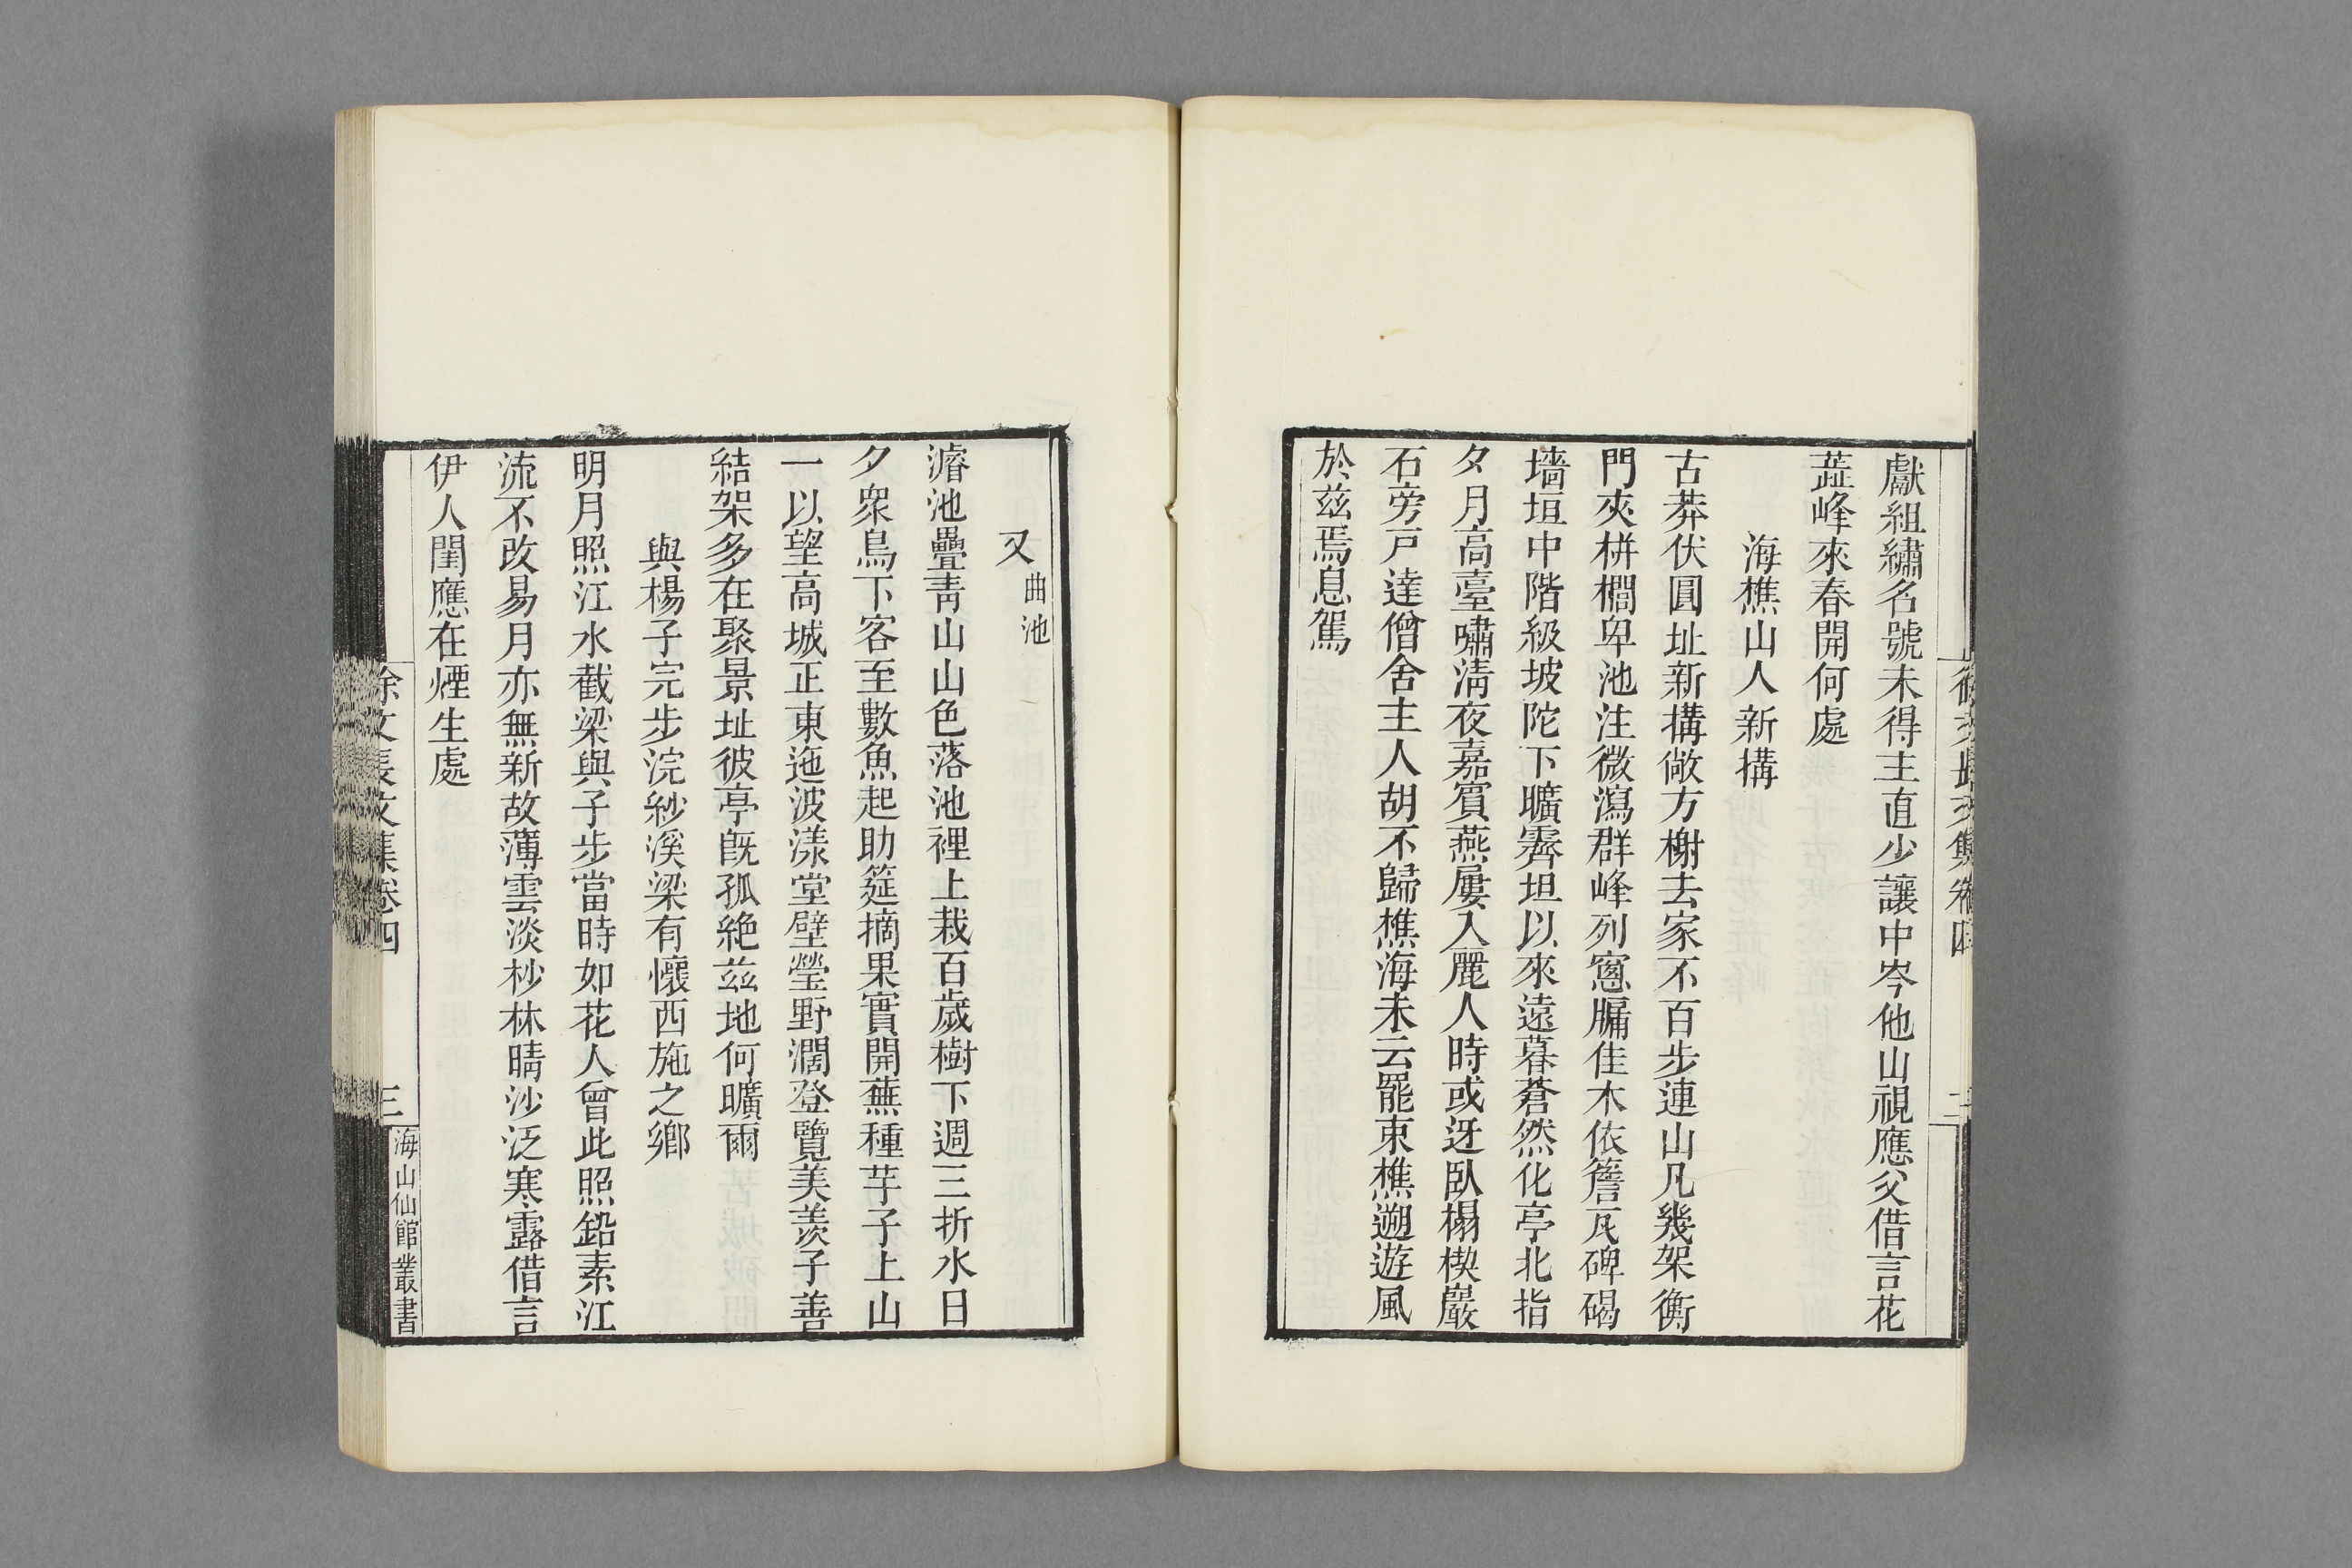 徐文長文集卷四
二
獻組繡名號未得主直少讓中岑他山視應父借言花
蕋峰來春開何處
海樵山人新搆
古莽伏圓址新搆敞方榭去家不百步連山凡幾架衡
門夾栟櫚卑池注微瀉群峰列窻牖佳木依簷瓦碑碣
墻垣中階級坡陀下曠霽坦以來遠暮蒼然化亭北指
夕月高臺嘯淸夜嘉賓燕屢入麗人時或迓臥榻楔巖
石旁戸達僧舍主人胡不歸樵海未云罷束樵遡遊風
於茲焉息駕
又曲池
濬池疊青山山色落池裡上栽百歲樹下週三折水日
夕衆鳥下客至數魚起助筵摘果實開蕪種芋子上山
一以望高城正東迤波漾堂壁瑩野濶登覽美羨子善
結架多在聚景址彼亭旣孤絶茲地何曠爾
與楊子完步浣紗溪梁有懷西施之鄉
明月照江水截梁與子步當時如花人曾此照鉛素江
流不改易月亦無新故薄雲淡杪林晴沙泛寒露借言
伊人閨應在煙生處
徐文長文集卷四
三
海山仙館叢書